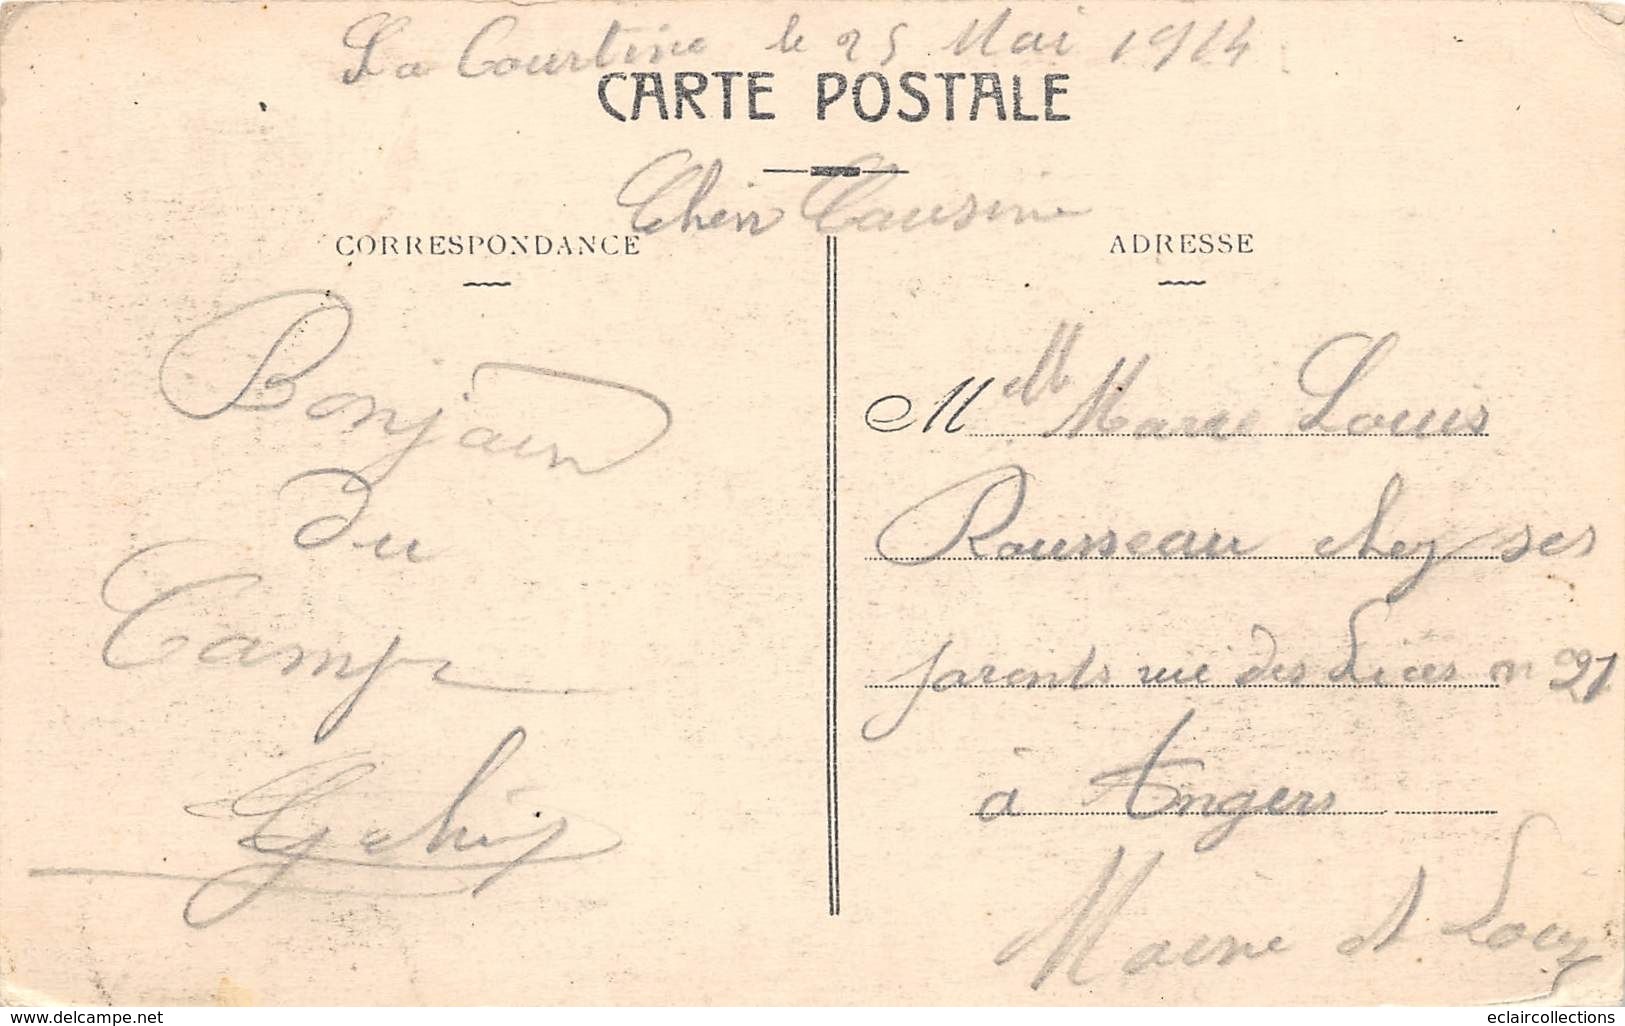 La Courtine le 25 Mai 1914
CARTE POSTALE
Chère Cousine
CORRESPONDANCE
Bonjour
du
Camp
ADRESSE
M elle Marie Louis
Rousseau chez ses
parents rue des Lices n 21
à Angers
Maine et Loire
www.delcampe.net
eclaircollections